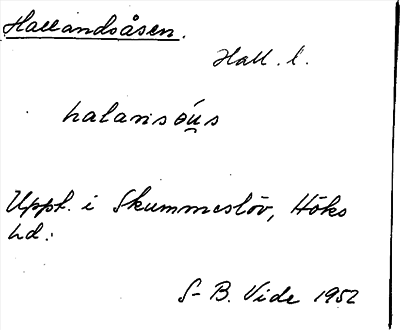 Hallandsåsen.
Hall. l.
halansóu̯s
Uppt. i Skummeslöv, Höks
hd:
S-B. Vide 1952